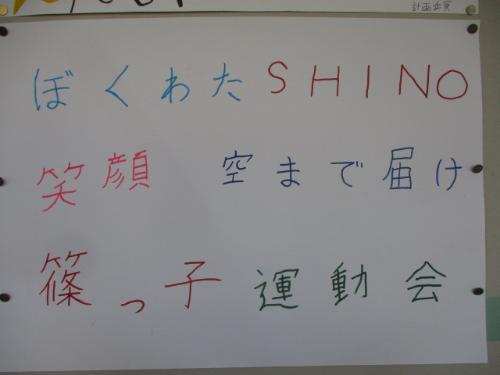 計画委員
ぼくわたSHINO
笑顔 空まで届け
篠っ子運動会